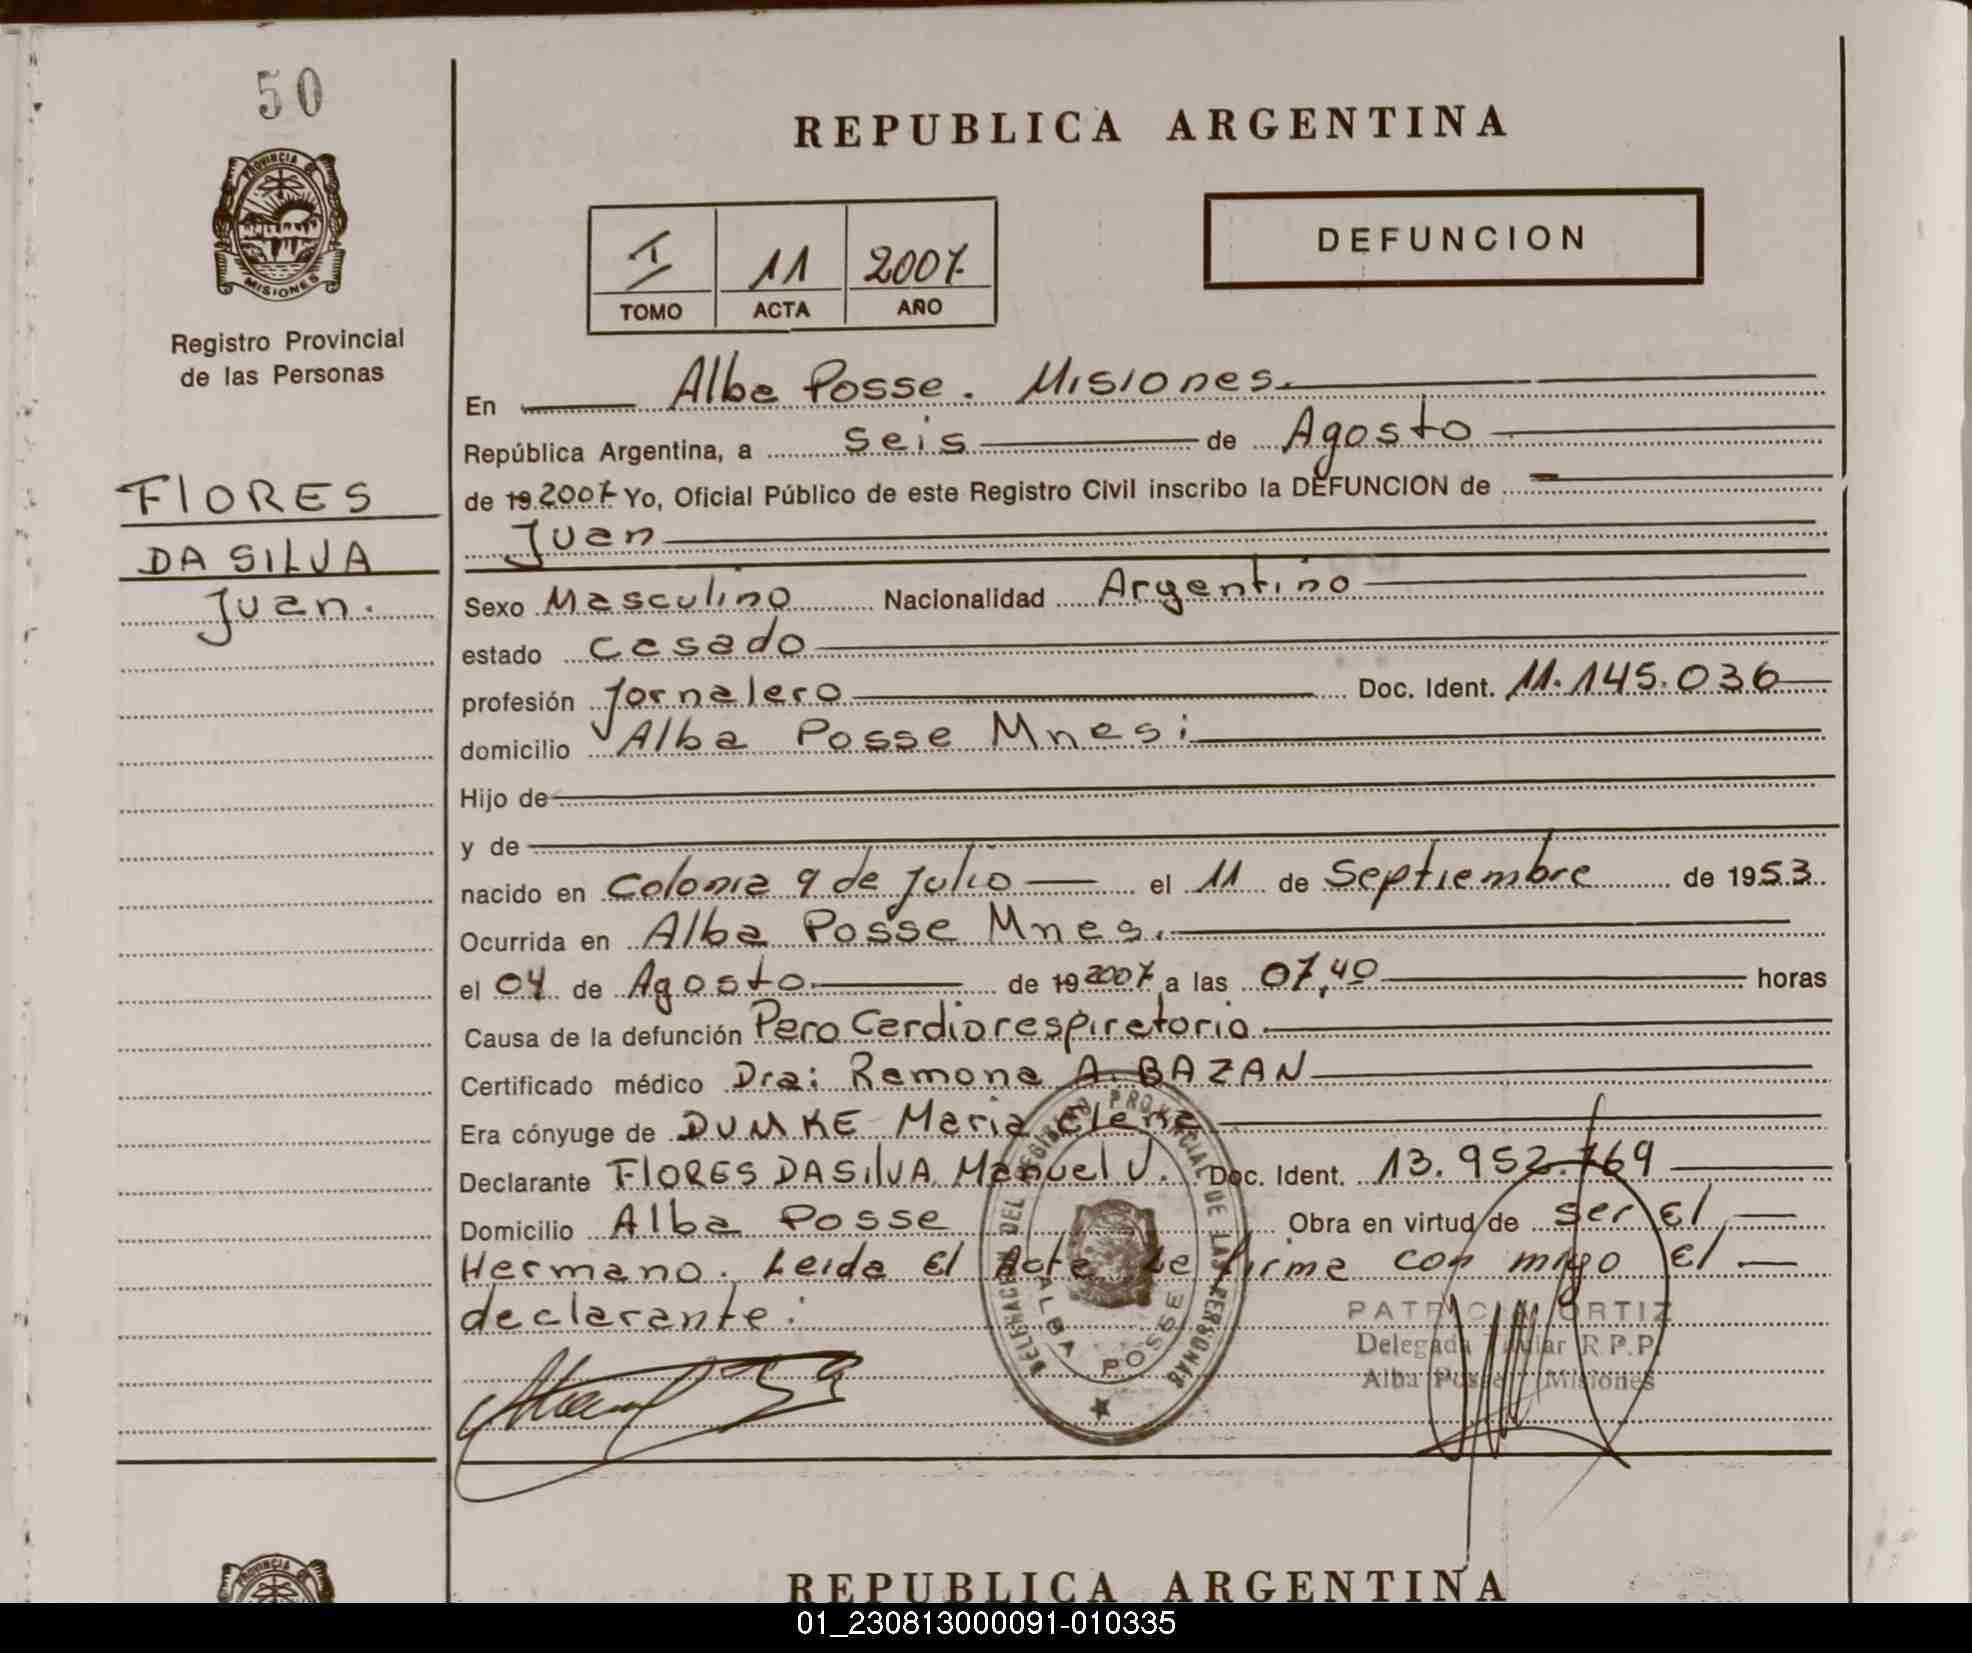 50
PROVINCIA DE
MISIONES
Registro Provincial
de las Personas
FlORES
DA SILVA
Juan.
REPUBLICA ARGENTINA
I 11 2007
TOMO ACTA AÑO
DEFUNCION
En Alba Posse. Misiones.
República Argentina, a seis de Agosto
de 19 2007 Yo, Oficial Público de este Registro Civil inscribo la DEFUNCION de
Juan
Sexo Masculino Nacionalidad Argentino
estado casado
profesión Jornalero Doc. Ident. 11.145.036
domicilio Alba Posse Mnes;
Hijo de
y de
nacido en Colonia 9 de Julio el 11 de Septiembre de 1953
Ocurrida en Alba Posse Mnes.
el 04 de Agosto de 19 2007 a las 07,40 horas
Causa de la defunción Paro Cardiorespiratorio
Certificado médico Dra: Ramona A. BAZAN
Era cónyuge de DUMKE Maria Elena
Declarante FlORES DA SilVA Manuel V. Doc. Ident. 13.952.769
Domicilio Alba Posse Obra en virtud de ser El
Hermano. Leida El Acta Le firma con migo El
declarante:
DELEGACION DEL REGISTRO PROVINCIAL DE LAS PERSONAS
ALBA POSSE
PATRICIA ORTIZ
Delegada Titular R.P.P.
Alba Posse Misiones
PROVINCIA
REPUBLICA ARGENTINA
01_230813000091-010335